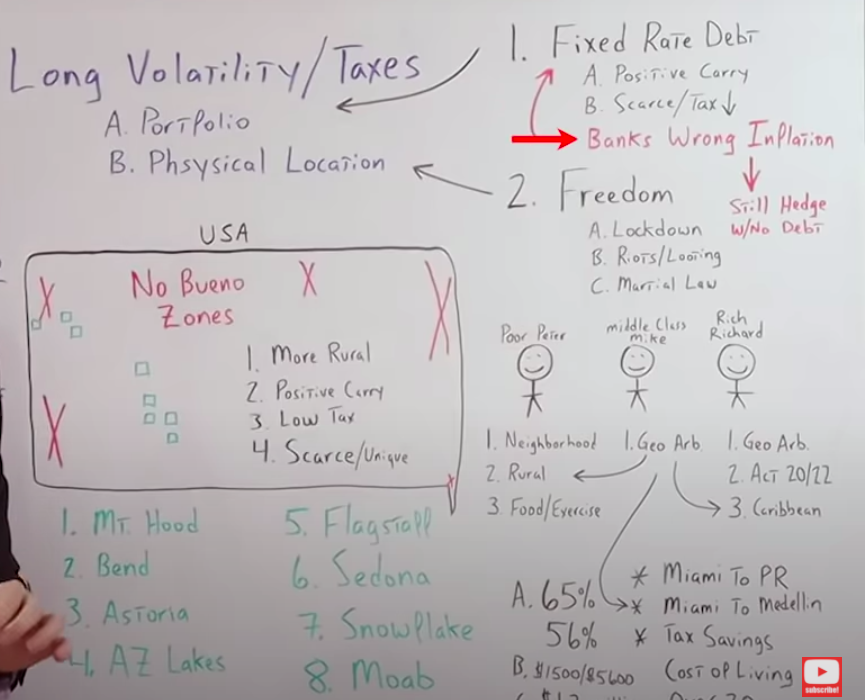 Long Volatility/Taxes
A. Portfolio
B. Phsysical Location
1. Fixed Rate Debt
A. Positive Carry
B. Scarce/Tax↓
Banks Wrong Inflation
Still Hedge
W/No Debt
2. Freedom
A. Lockdown
B. Riots/Looting
C. Martial Law
USA
No Bueno
Zones
1. More Rural
2. Positive Carry
3. Low Tax
4. Scarce/Unique
1. Mt. Hood
2. Bend
3. Astoria
4. AZ Lakes
5. Flagstaff
6. Sedona
7. Snowflake
8. Moab
Poor Peter
1. Neighborhood
2. Rural
3. Food/Exercise
middle Class
mike
1. Geo Arb.
Rich
Richard
1. Geo Arb.
2. Act 20/22
3. Caribbean
A. 65%
56%
B. $1500/$5600
* Miami To PR
* Miami To Medellin
* Tax Savings
Cost of Living
subscribe!